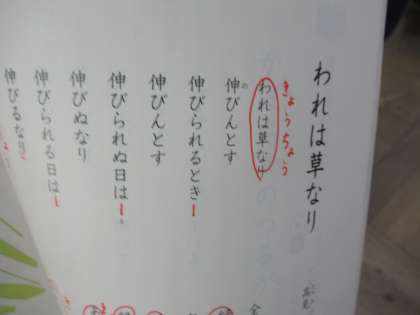 われは草なり
きょうちょう
われは草なり
伸びんとす
の
伸びられるとき
伸びんとす
伸びられぬ日は
伸びぬなり
伸びられる日は
伸びるなり